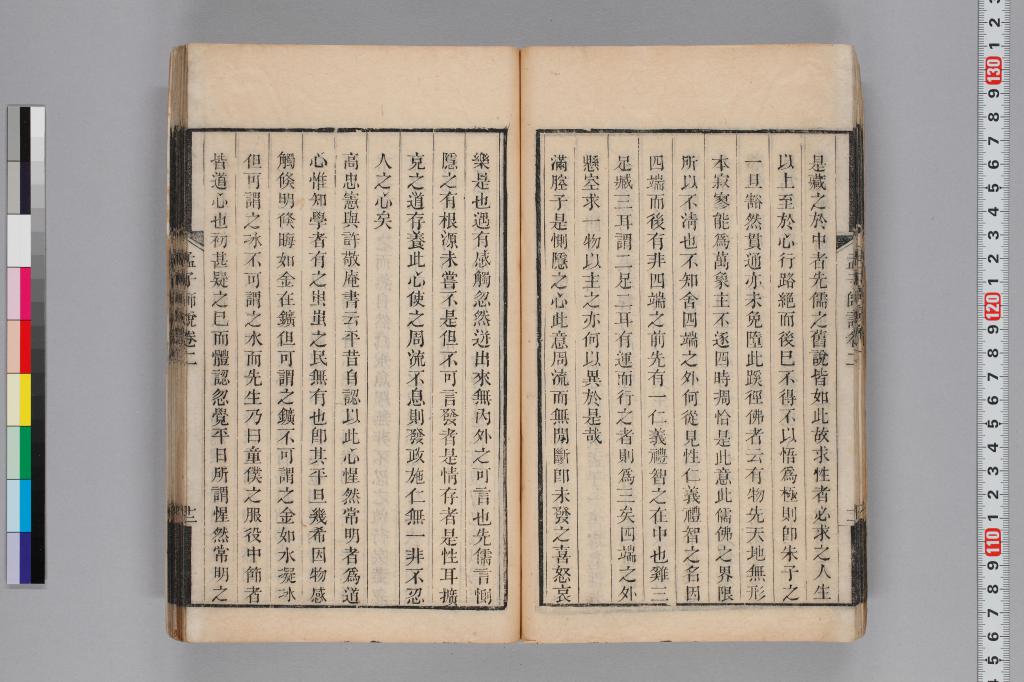 是藏之於中者先儒之舊說皆如此故求性者必求之人生
以上至於心行路絕而後已不得不以悟爲極則卽朱子之
一旦豁然貫通亦未免墮此蹊徑佛者云有物先天地無形
本寂寥能爲萬象主不逐四時凋恰是此意此儒佛之界限
所以不淸也不知舍四端之外何從見性仁義禮智之名因
四端而後有非四端之前先有一仁義禮智之在中也雞三
足臧三耳謂二足二耳有運而行之者則爲三矣四端之外
懸空求一物以主之亦何以異於是哉
滿腔子是惻隱之心此意周流而無閒斷卽未發之喜怒哀
樂是也遇有感觸忽然迸出來無內外之可言也先儒言惻
隱之有根源未嘗不是但不可言發者是情存者是性耳擴
充之道存養此心使之周流不息則發政施仁無一非不忍
人之心矣
高忠憲與許敬庵書云平昔自認以此心惺然常明者爲道
心惟知學者有之蚩蚩之民無有也卽其平旦幾希因物感
觸倐明倐晦如金在鑛但可謂之鑛不可謂之金如水凝冰
但可謂之冰不可謂之水而先生乃曰童僕之服役中節者
皆道心也初甚疑之已而體認忽覺平日所謂惺然常明之
孟子師說卷二